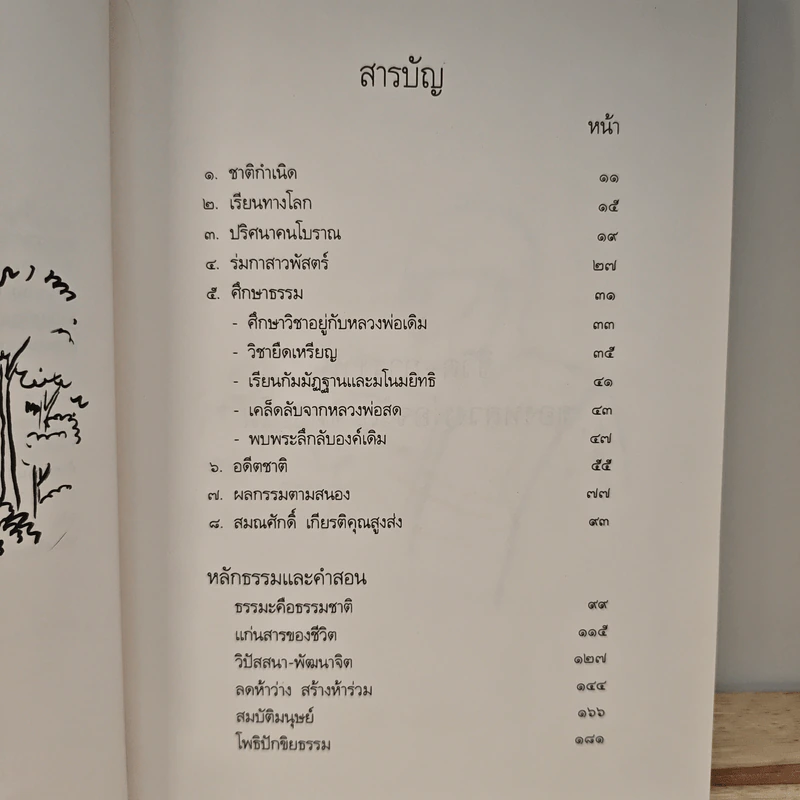 สารบัญ
หน้า
๑. ชาติกำเนิด ๑๑
๒. เรียนทางโลก ๑๕
๓. ปริศนาคนโบราณ ๑๙
๔. ร่มกาสาวพัสตร์ ๒๗
๕. ศึกษาธรรม ๓๑
- ศึกษาวิชาอยู่กับหลวงพ่อเดิม ๓๓
- วิชายืดเหรียญ ๓๕
- เรียนกัมมัฏฐานและมโนมยิทธิ ๔๑
- เคล็ดลับจากหลวงพ่อสด ๔๓
- พบพระลึกลับองค์เดิม ๔๗
๖. อดีตชาติ ๕๕
๗. ผลกรรมตามสนอง ๗๗
๘. สมณศักดิ์ เกียรติคุณสูงส่ง ๙๓
หลักธรรมและคำสอน
ธรรมะคือธรรมชาติ ๙๙
แก่นสารของชีวิต ๑๑๕
วิปัสสนา-พัฒนาจิต ๑๒๗
ลดห้าว่าง สร้างห้าร่วม ๑๔๔
สมบัติมนุษย์ ๑๖๖
โพธิปักขิยธรรม ๑๘๑